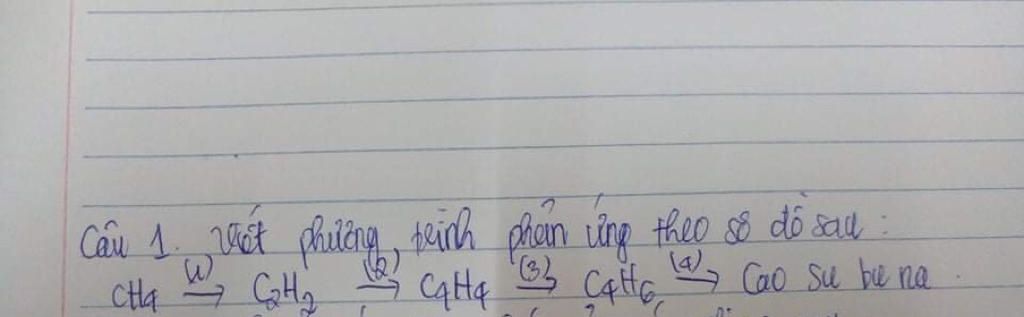 Câu 1. Viết phương trình phản ứng theo sơ đồ sau :
CH4 (1)→ C2H2 (2)→ C4H4 (3)→ C4H6 (4)→ Cao su buna.